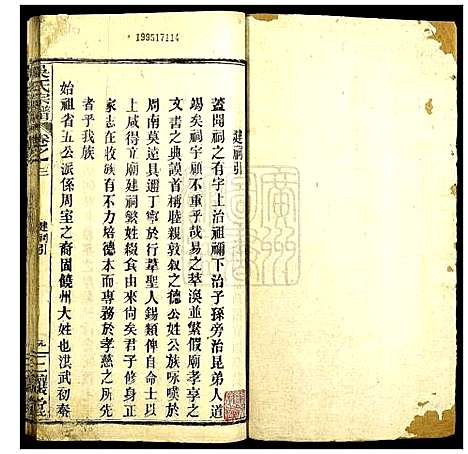 199517114
建祠引
蓋聞祠之有字上治祖禰下治子孫旁治昆弟人道
竭矣祠宇顧不重乎哉易之萃渙並繁假廟孝享之
文書之典謨首稱睦親敦敘之德公姓公族咏嘆於
周南莫遠具邇丁寧於行葦聖人錫類俾自命士以
上咸得立廟建祠繁姓綴食由來尚矣君子修身正
家志在收族有不力培德本而專務於孝慈之所先
者乎我族
始祖省五公派係周室之裔固饒州大姓也洪武初秦
吳氏宗譜
卷之三
建祠引
三讓堂